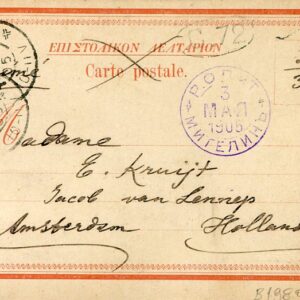 ΕΠΙΣΤΟΛΙΚΟΝ ΔΕΛΤΑΡΙΟΝ
Carte postale.
РОПИТ
3
МАЯ
1905
МИТЕЛИНЪ
Madame
E. Kruijt
Jacob van Lennep
Amsterdam Holland